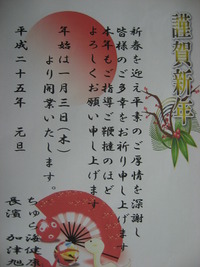 謹賀新年
新春を迎え平素のご厚情を深謝し
皆様のご多幸をお祈り申し上げます
本年もご指導ご鞭撻のほど
よろしくお願い申し上げます
年始は一月三日(木)
より開業いたします。
平成二十五年 元旦
長濱 加津旭